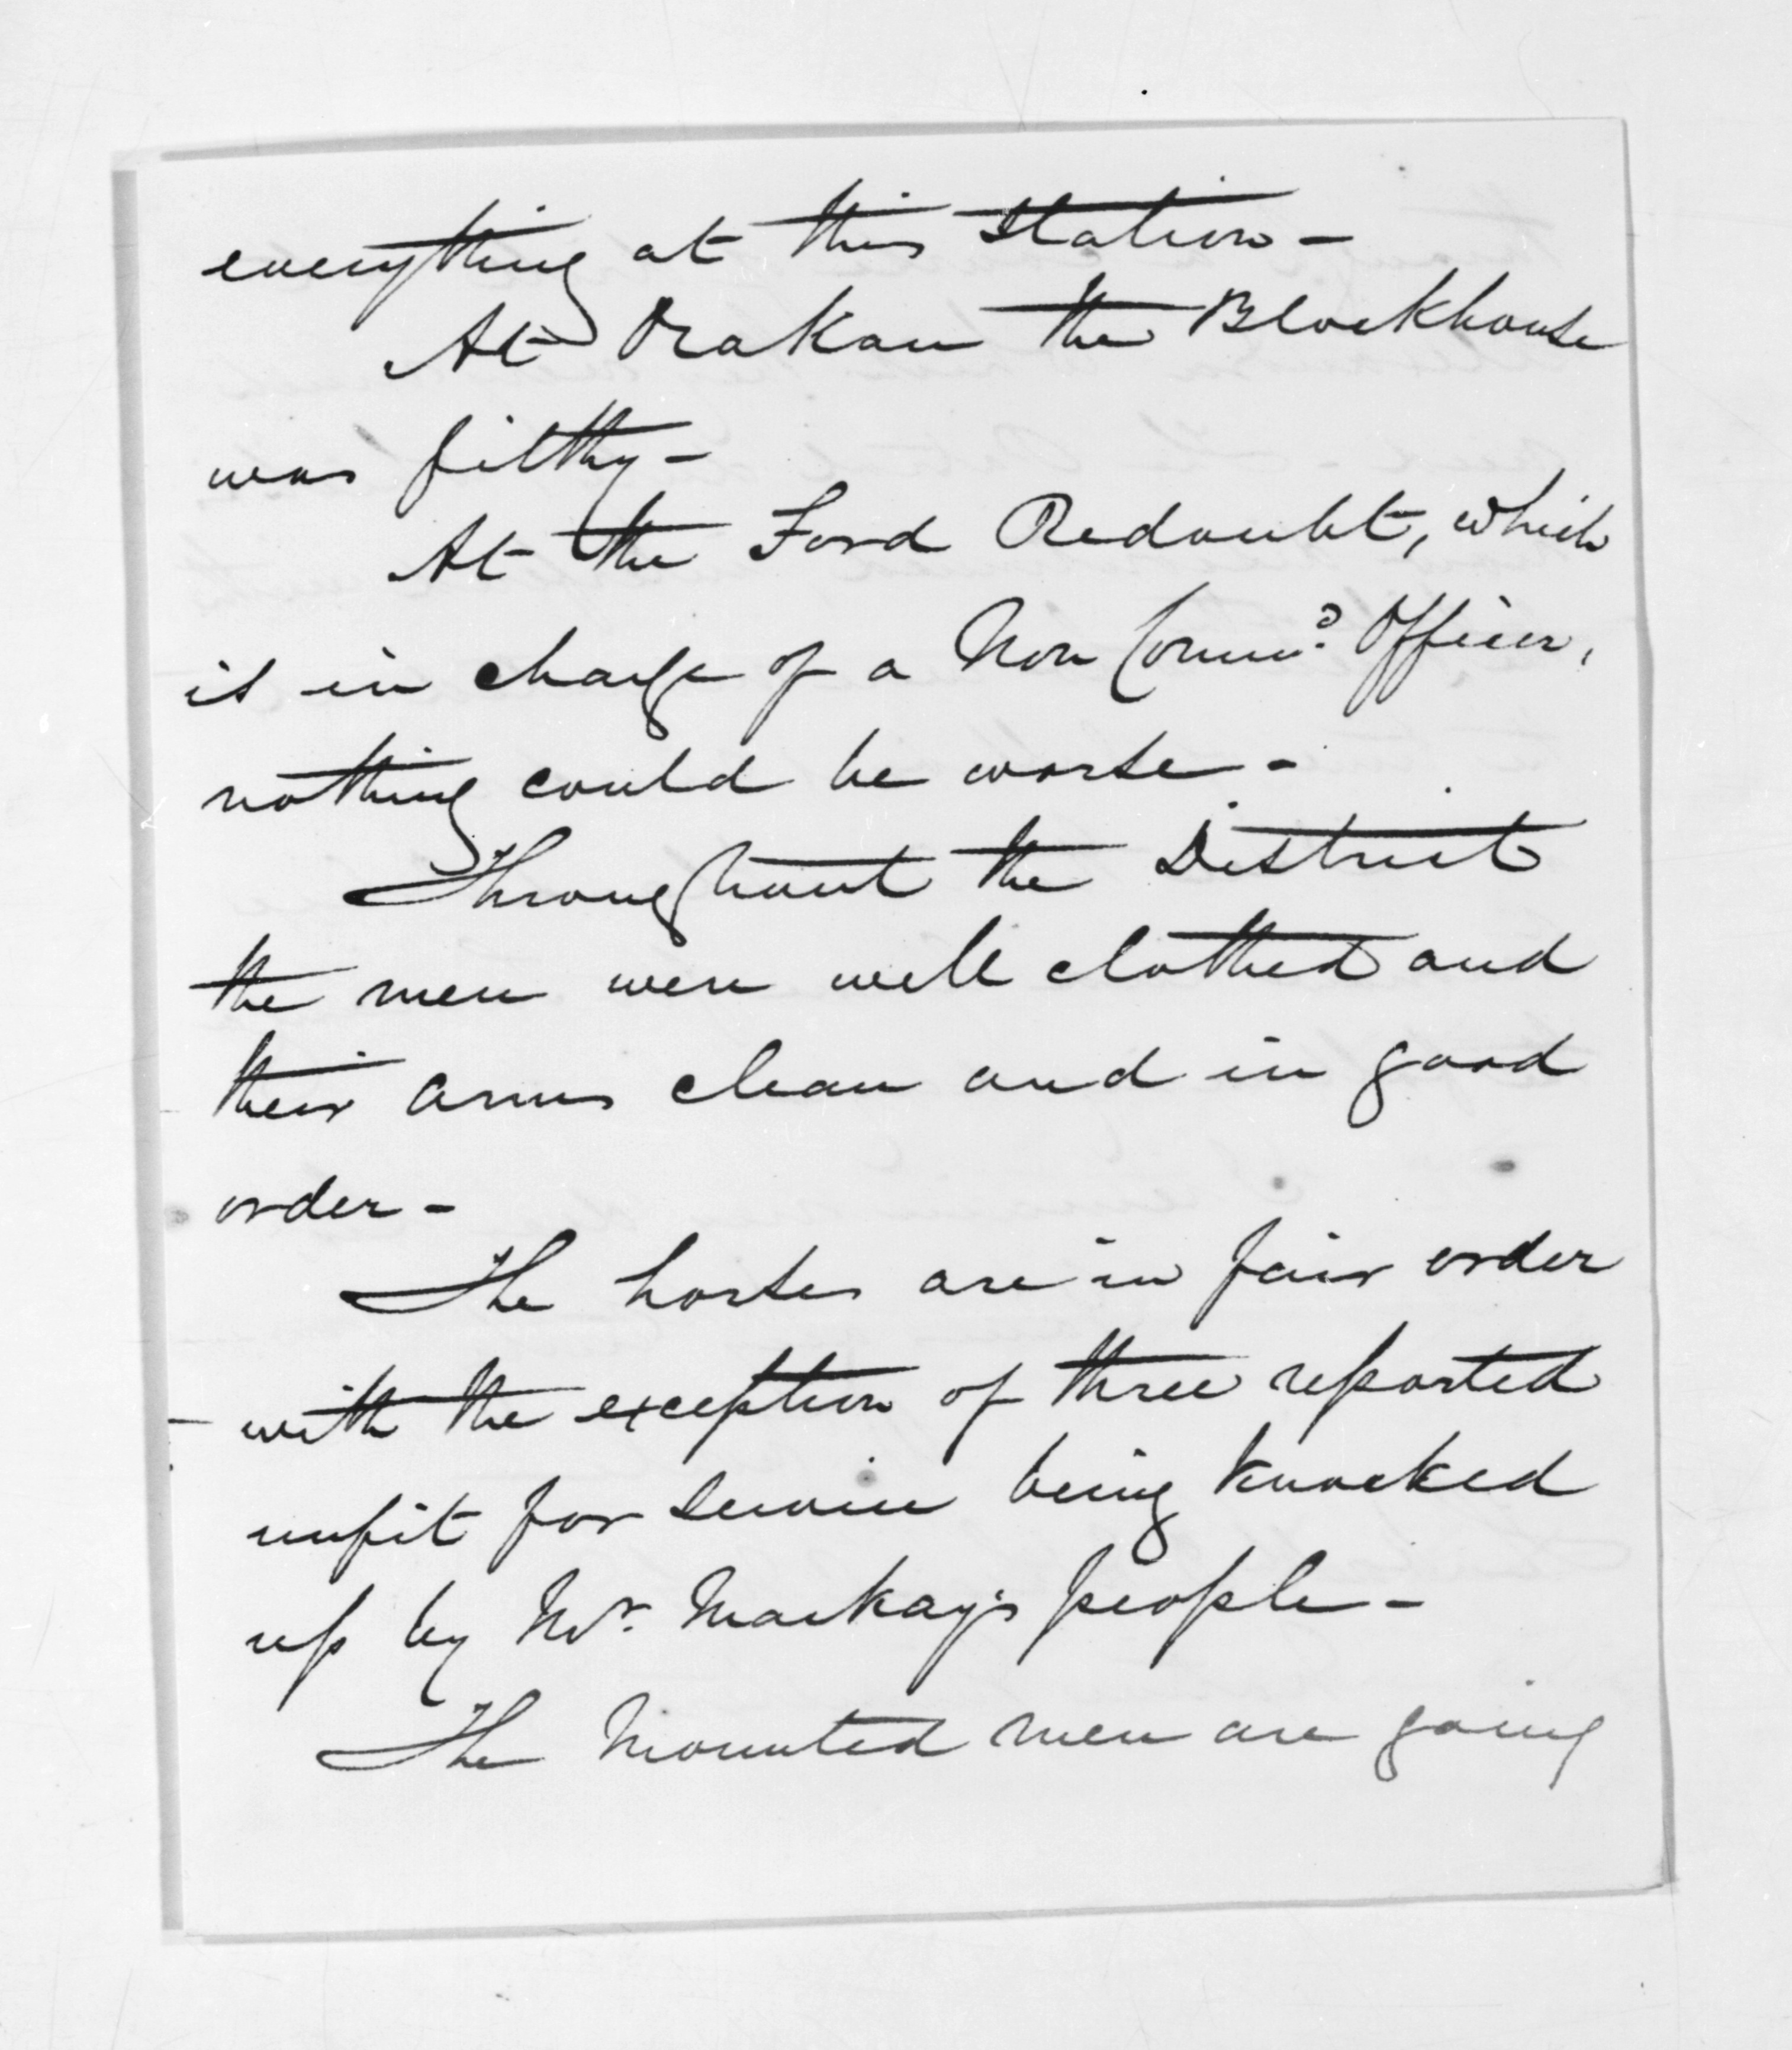 everything at this Station -
At Orakau the Blockhouse
was filthy -
At the Ford Redoubt, which
is in charge of a Non Commd. Officer,
nothing could be worse -
Throughout the District
the men were well clothed and
their arms clean and in good
order -
The horses are in fair order
with the exception of three reported
unfit for Service being knocked
up by Mr. Mackay's people -
The Mounted men are going